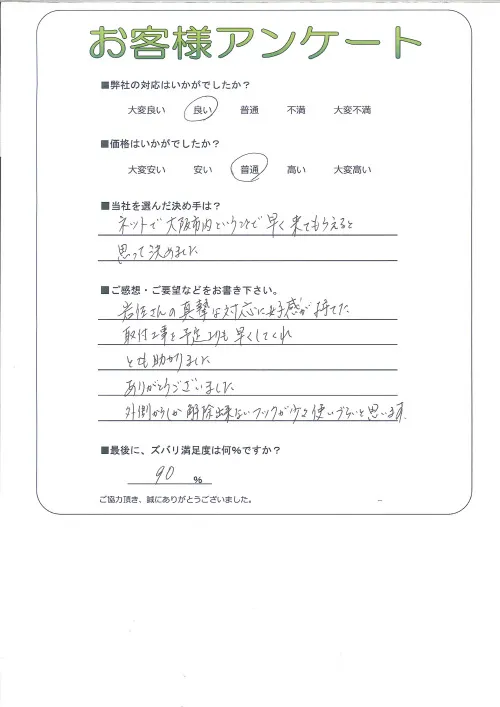 お客様アンケート
■弊社の対応はいかがでしたか？
大変良い 良い 普通 不満 大変不満
■価格はいかがでしたか？
大変安い 安い 普通 高い 大変高い
■当社を選んだ決め手は？
ネットで大阪市内ということで早く来てもらえると
思って決めました
■ご感想・ご要望などをお書き下さい。
岩佐さんの真摯な対応に好感が持てた
取付工事を予定よりも早くしてくれ
とても助かりました
ありがとうございました
外側からしか解除出来ないフックが少々使いづらいと思います.
■最後に、ズバリ満足度は何％ですか？
90 %
ご協力頂き、誠にありがとうございました。